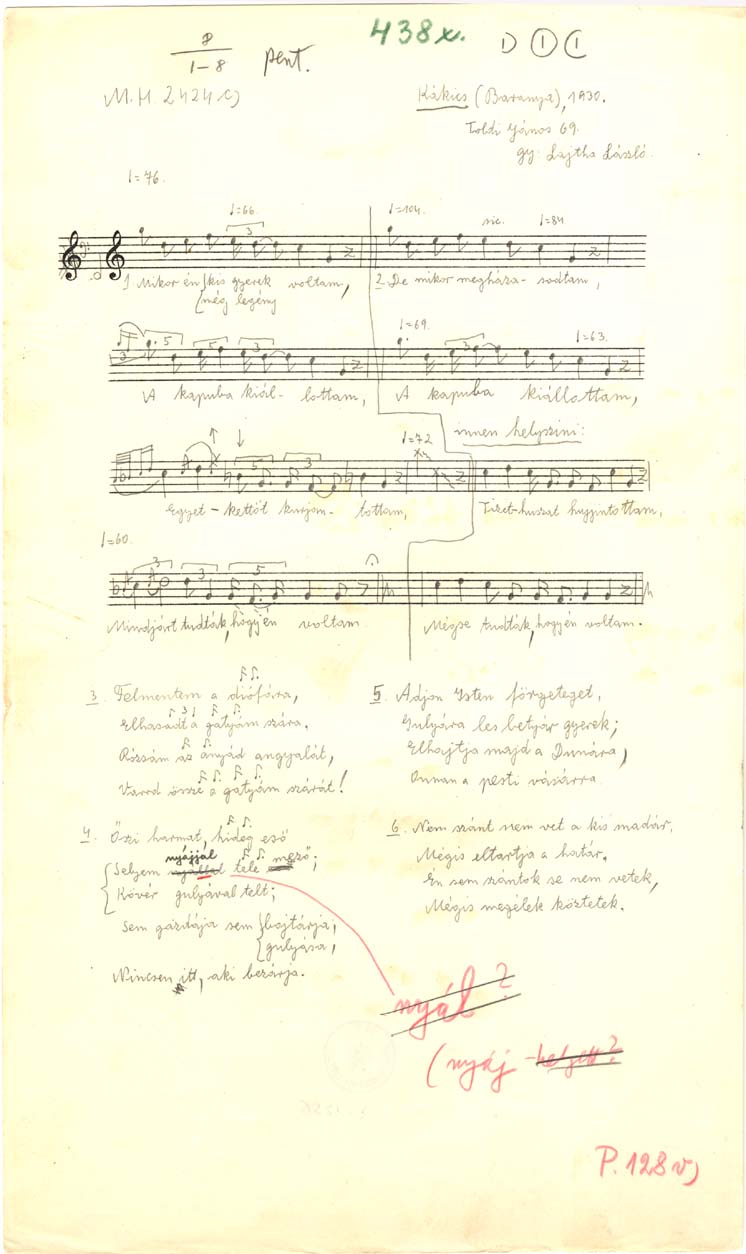 8
1-8 pent.
438x. D I C
M.H. 2424 c)
Kákics (Baranya), 1930.
Toldi János 69.
gy: Lajtha László.
♩=76.
♩=66.
♩=104.
sic.
♩=84
1. Mikor én { kis gyerek voltam,
{ még legény
2. De mikor megháza- sodtam,
♩=69.
♩=63.
A kapuba kiál- lottam,
A kapuba kiállottam,
♩=72
innen helyszini:
Egyet- kettőt kurjan- tottam,
Tizet-huszat hujjintottam,
♩=60.
Mindjárt tudták, hogy én voltam.
Mégse tudták, hogy én voltam.
3. Felmentem a diófára,
Elhasadt a gatyám szára.
Rózsám az anyád angyalát,
Varrd össze a gatyám szárát!
4. Őszi harmat, hideg eső
nyájjal
Selyem tele mező;
Kövér gulyával telt;
Sem gazdája sem { bojtárja;
{ gulyása,
Nincsen itt, aki bezárja.
5. Adjon Isten förgeteget,
Gulyára les betyár gyerek;
Elhajtja majd a Dunára,
Onnan a pesti vásárra
6. Nem szánt nem vet a kis madár,
Mégis eltartja a határ.
Én sem szántok se nem vetek,
Mégis megélek köztetek.
nyál?
(nyáj - helyett?
P. 128 v)